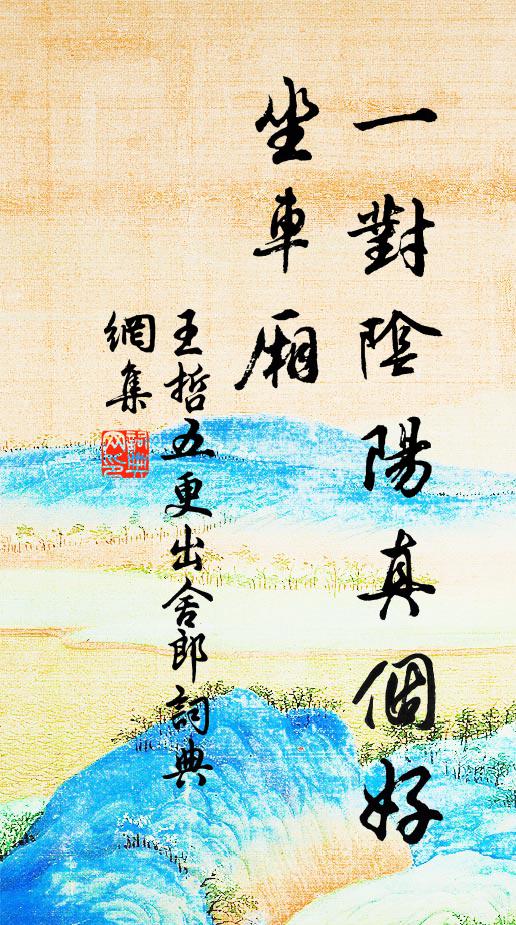 一對陰陽真個好
坐車廂
王哲五更出舍郎詞典
網集